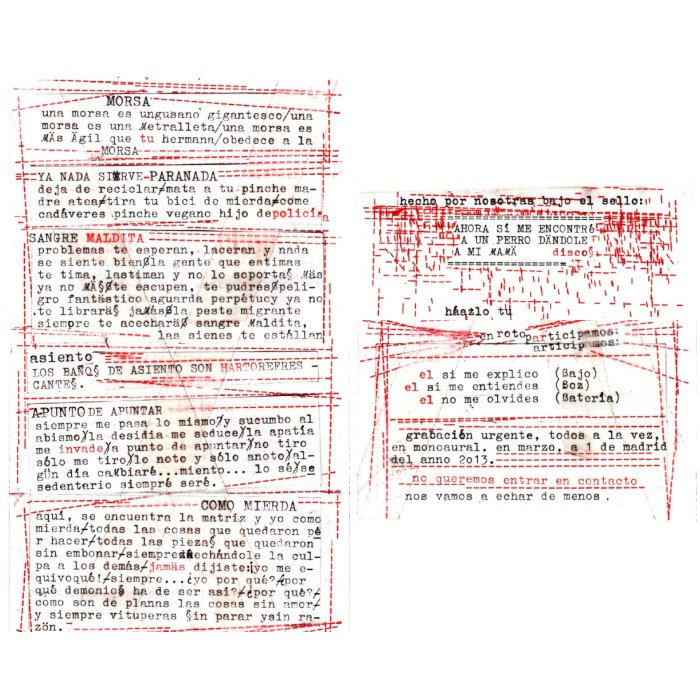 MORSA
una morsa es ungusano gigantesco/una
morsa es una metralleta/una morsa es
mäs ägil que tu hermana/obedece a la
MORSA
YA NADA SIERVE PARANADA
deja de reciclar/mata a tu pinche ma-
dre atea/tira tu bici de mierda/come
cadáveres pinche vegano hijo depolicía
SANGRE MALDITA
problemas te esperan, laceran y nada
se siente bienØla gente que estimas
te tima, lastiman y no lo soporta§ mäs
ya no MÄ§Øte escupen, te pudresØpeli-
gro fantästico aguarda perpétucy ya no
te libraräs jamäsØla peste migrante
siempre te acecharäØ sangre maldita,
las sienes te estállan
asiento
LOS BAÑO§ DE ASIENTO SON HARTOREFRES -
CANTE§.
APUNTO DE APUNTAR
siempre me pasa lo mismo/y sucumbo al
abismo/la desidia me seduce/la apatía
me invade/a punto de apuntar/no tiro
sólo me tiro/lo noto y sólo anoto/al-
gün dia cambiaré...miento... lo sé/se
sedentario siempré seré.
COMO MIERDA
aquí, se encuentra la matriz y yo como
mierda/todas las cosas que quedaron pe
r hacer/todas las pieza§ que quedaron
sin embonar/siempre echándole la cul-
pa a los demás/jamäs dijiste:¡yo me e-
quivoqué!/siempre...¿yo por qué?/¿por
qué demonio§ ha de ser asi?/¿por qué?/
como son de planas las cosas sin amor/
y siempre vituperas §in parar ysin ra-
zön.
hecho por nosotras bajo el sello:
AHORA SÍ ME ENCONTRÉ
A UN PERRO DÄNDOLE
A MI MAMÄ disco§
háazlo tu
en roto participamos:
articipamos:
el si me explico (Bajo)
el si me entiendes (Boz)
el no me olvides (Batería)
grabación urgente, todos a la vez,
en monoaural. en marzo, a 1 de madrid
del anno 2013.
no queremos entrar en contacto
nos vamos a echar de menos.